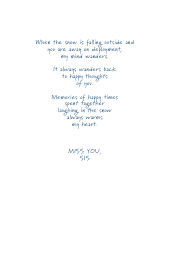 When the snow is falling outside and
you are away on deployment,
my mind wanders.
It always wanders back
to happy thoughts
of you.
Memories of happy times
spent together
laughing in the snow
always warms
my heart.
MISS YOU,
SIS